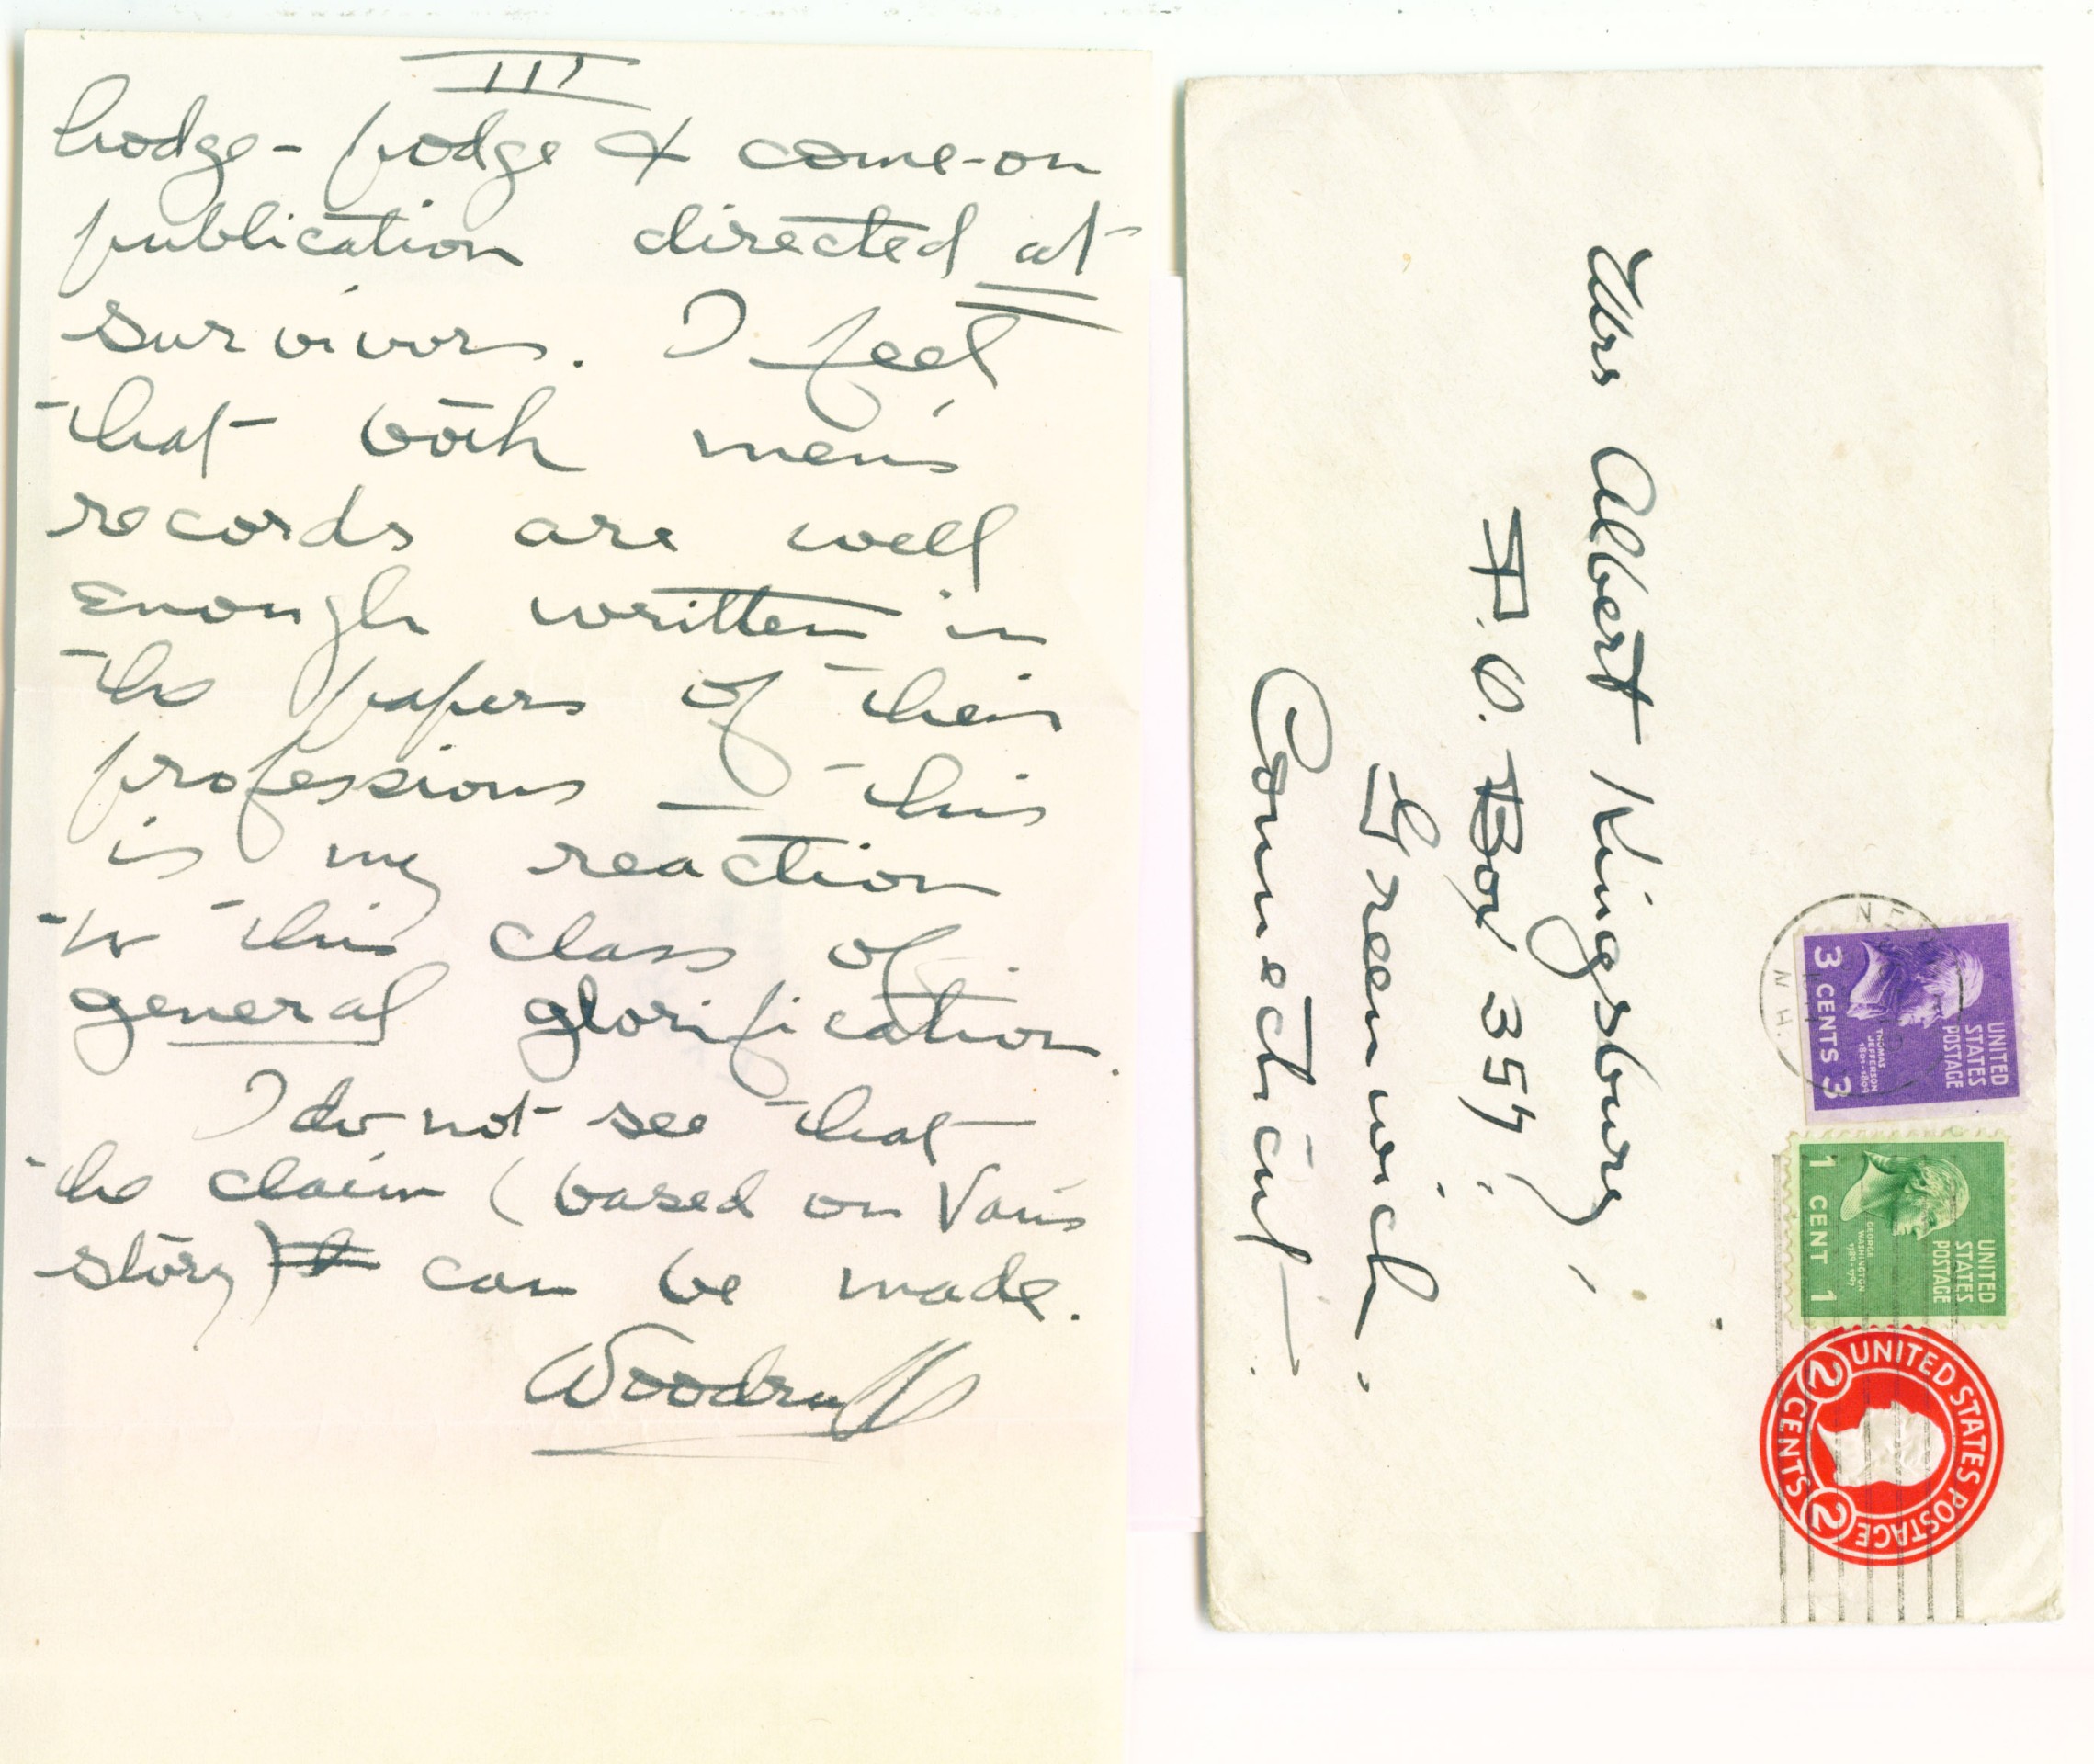 III
hodge-podge & come-on
publication directed at
survivors. I feel
that both men's
records are well
enough written in
the papers of their
professions — this
is my reaction
to this class of
general glorification.
I do not see that
the claim (based on Van's
story) can be made.
Woodruff
Mrs Albert Kingsbury,
P.O. Box 357,
Greenwich,
Connecticut.
UNITED
STATES
POSTAGE
THOMAS
JEFFERSON
1801-1809
3 CENTS 3
UNITED
STATES
POSTAGE
GEORGE
WASHINGTON
1789-1797
1 CENT 1
UNITED STATES POSTAGE
2 CENTS 2
N.H.